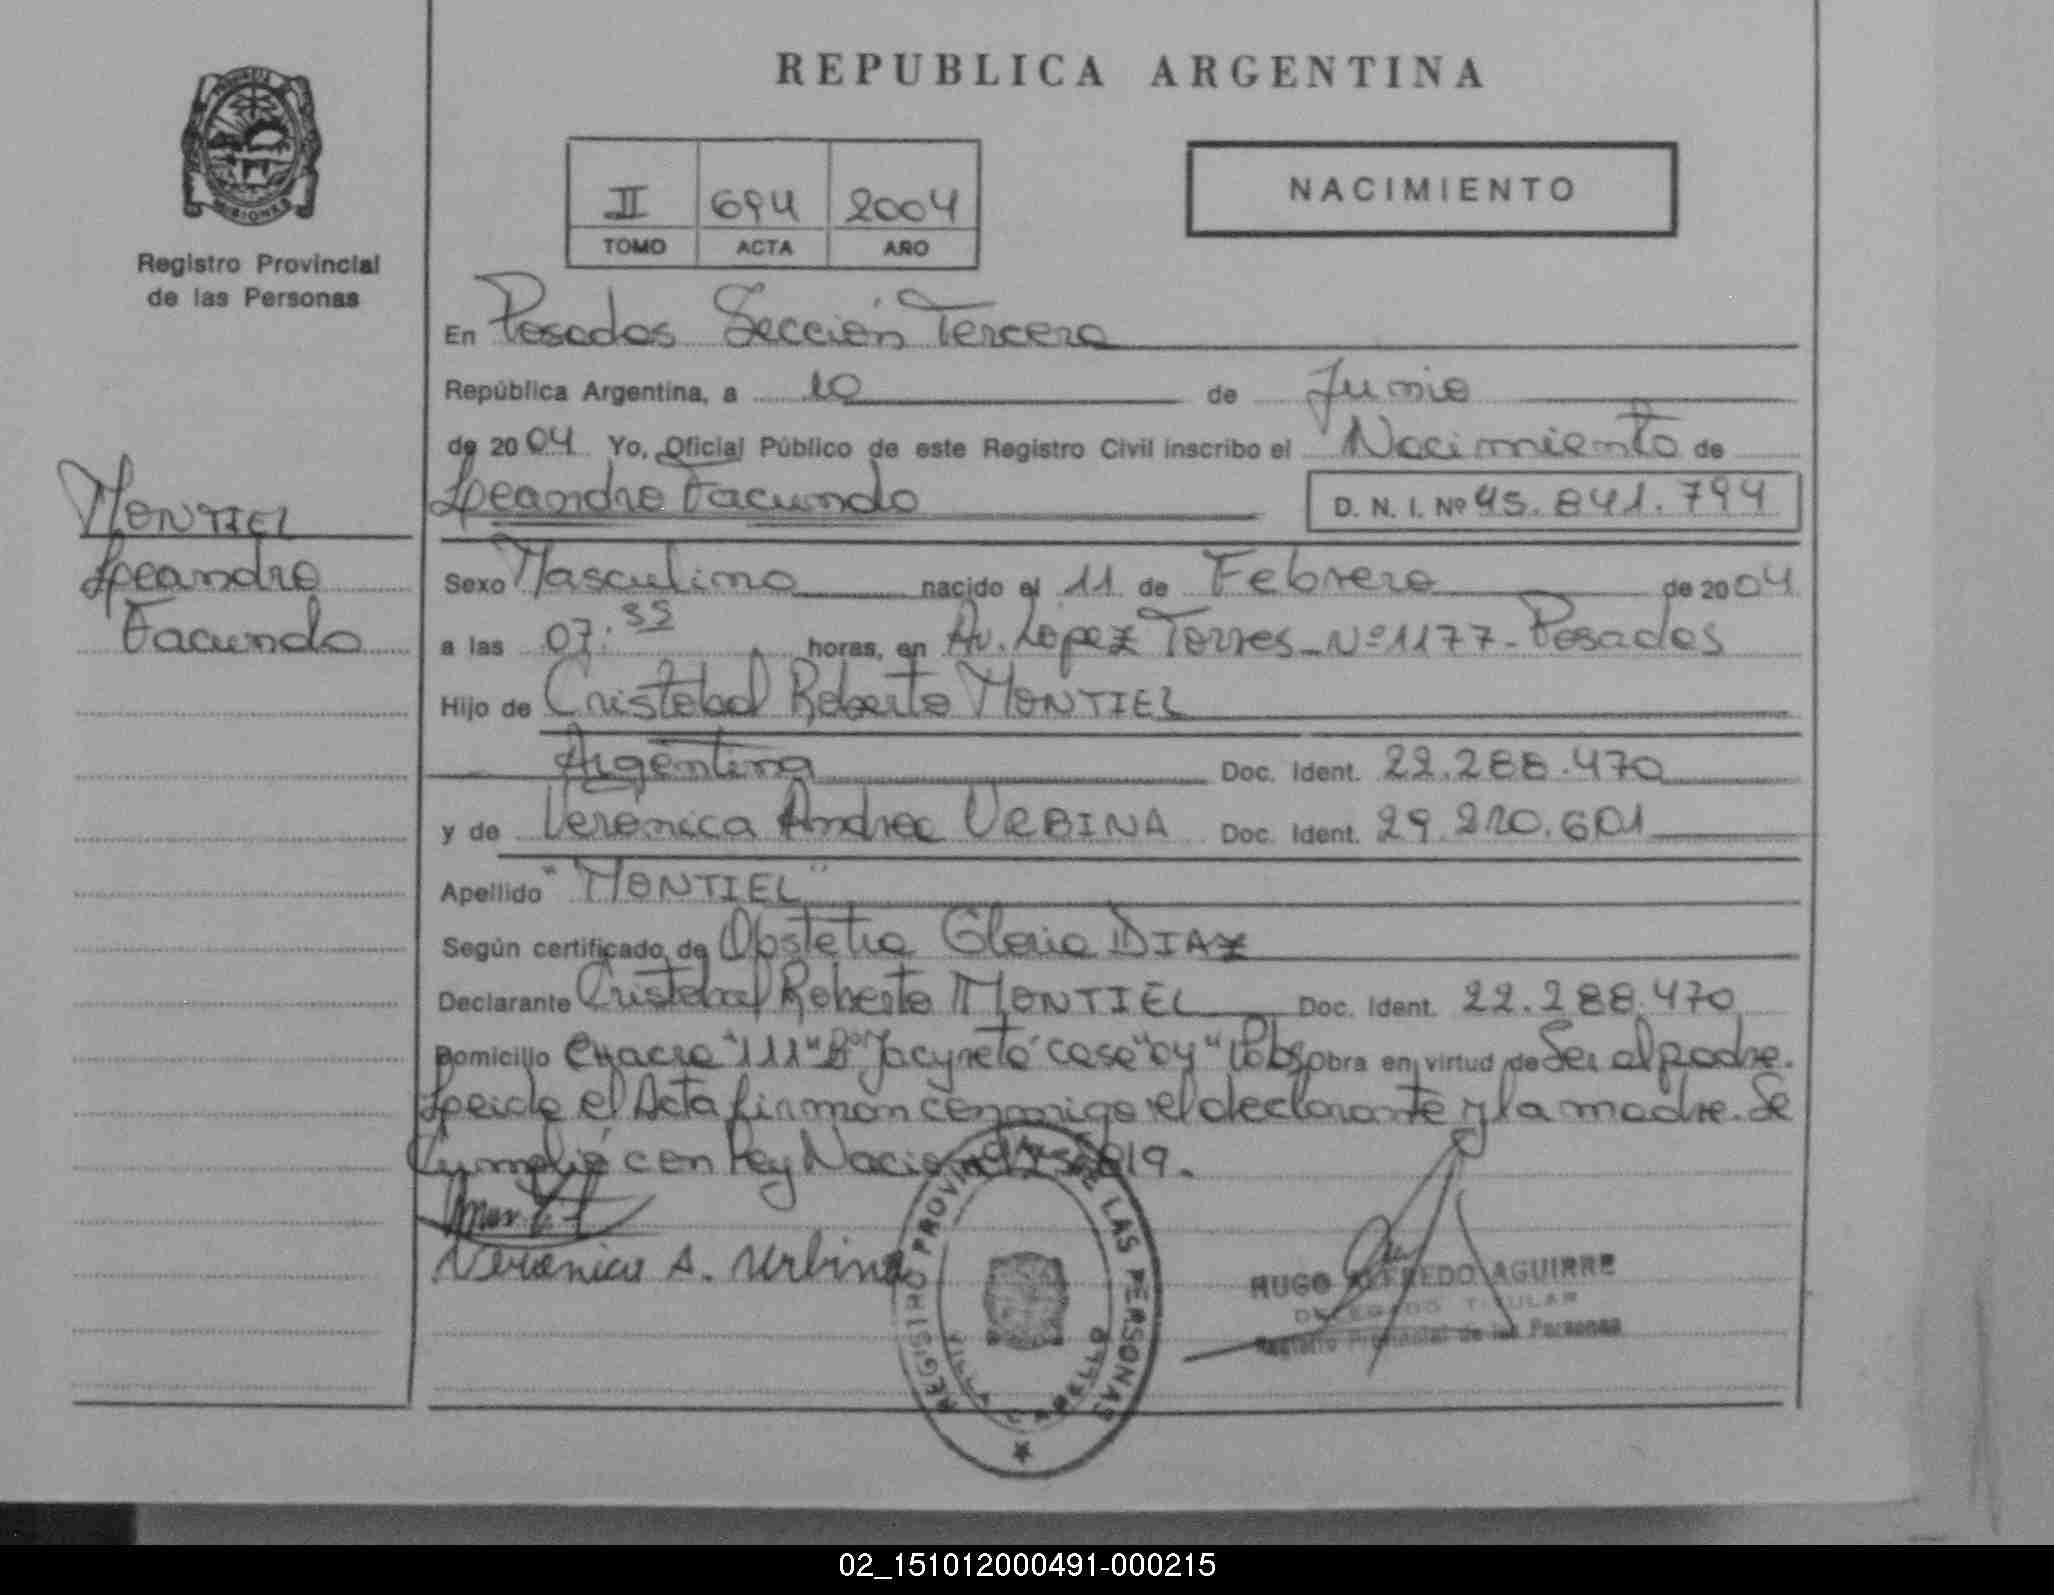 REPUBLICA ARGENTINA
NACIMIENTO
II 694 2004
TOMO ACTA AÑO
Registro Provincial
de las Personas
En Posadas Sección Tercera
República Argentina, a 10 de Junio
de 2004 Yo, Oficial Público de este Registro Civil inscribo el Nacimiento de
Leandro Facundo D. N. I. Nº 45.841.794
MONTIEL
Leandro
Facundo
Sexo Masculino nacido el 11 de Febrero de 2004
a las 07:35 horas, en Av. Lopez Torres - Nº 1177 - Posadas
Hijo de Cristobal Roberto MONTIEL
Argentina Doc. Ident. 22.288.470
y de Verónica Andrea URBINA Doc. Ident. 29.210.601
Apellido "MONTIEL"
Según certificado de Obstetra Gloria DIAZ
Declarante Cristobal Roberto MONTIEL Doc. Ident. 22.288.470
Domicilio Chacra "111" Bº Yacyretá casa "04" Pdas obra en virtud de Ser el padre.
Leida el Acta firman conmigo el declarante y la madre. Se
Cumplió con Ley Nacional
Veronica A. Urbina
HUGO ALFREDO AGUIRRE
DELEGADO TITULAR
Registro Provincial de las Personas
REGISTRO PROVINCIAL DE LAS PERSONAS
VILLA CABELLO
MISIONES
02_151012000491-000215